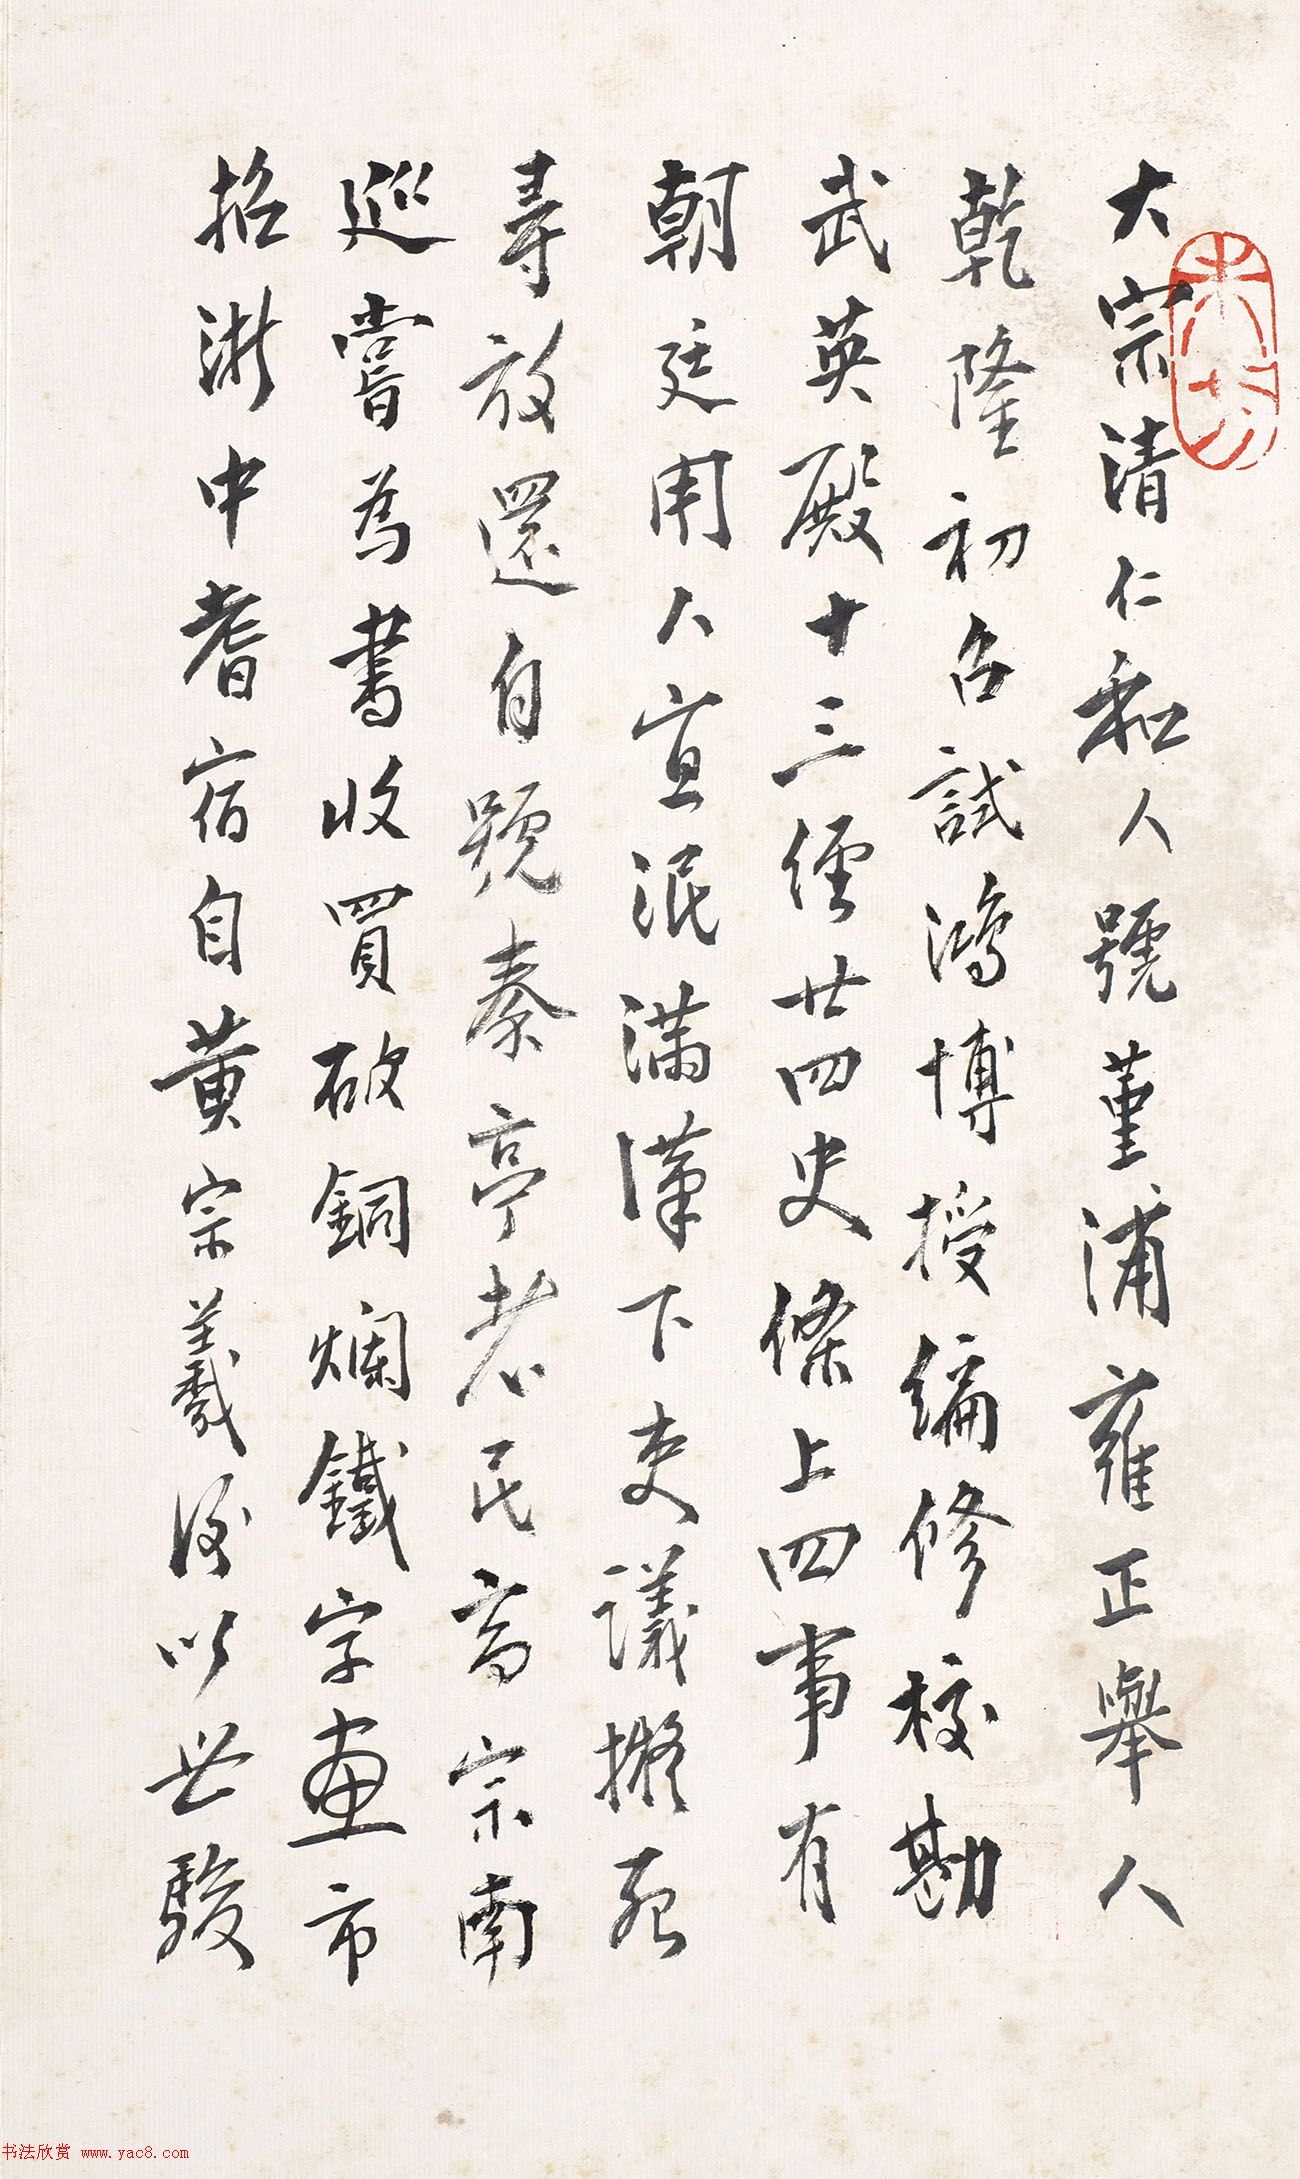 大宗清仁和人號菫浦雍正舉人
乾隆初召試鴻博授編修校勘
武英殿十三經廿四史條上四事有
朝廷用人宜泯滿漢下吏議擬死
尋放還自號秦亭老民高宗南
巡嘗為書收買破銅爛鐵字畫市
招浙中耆宿自黃宗羲後以世駿
书法欣赏 www.yac8.com